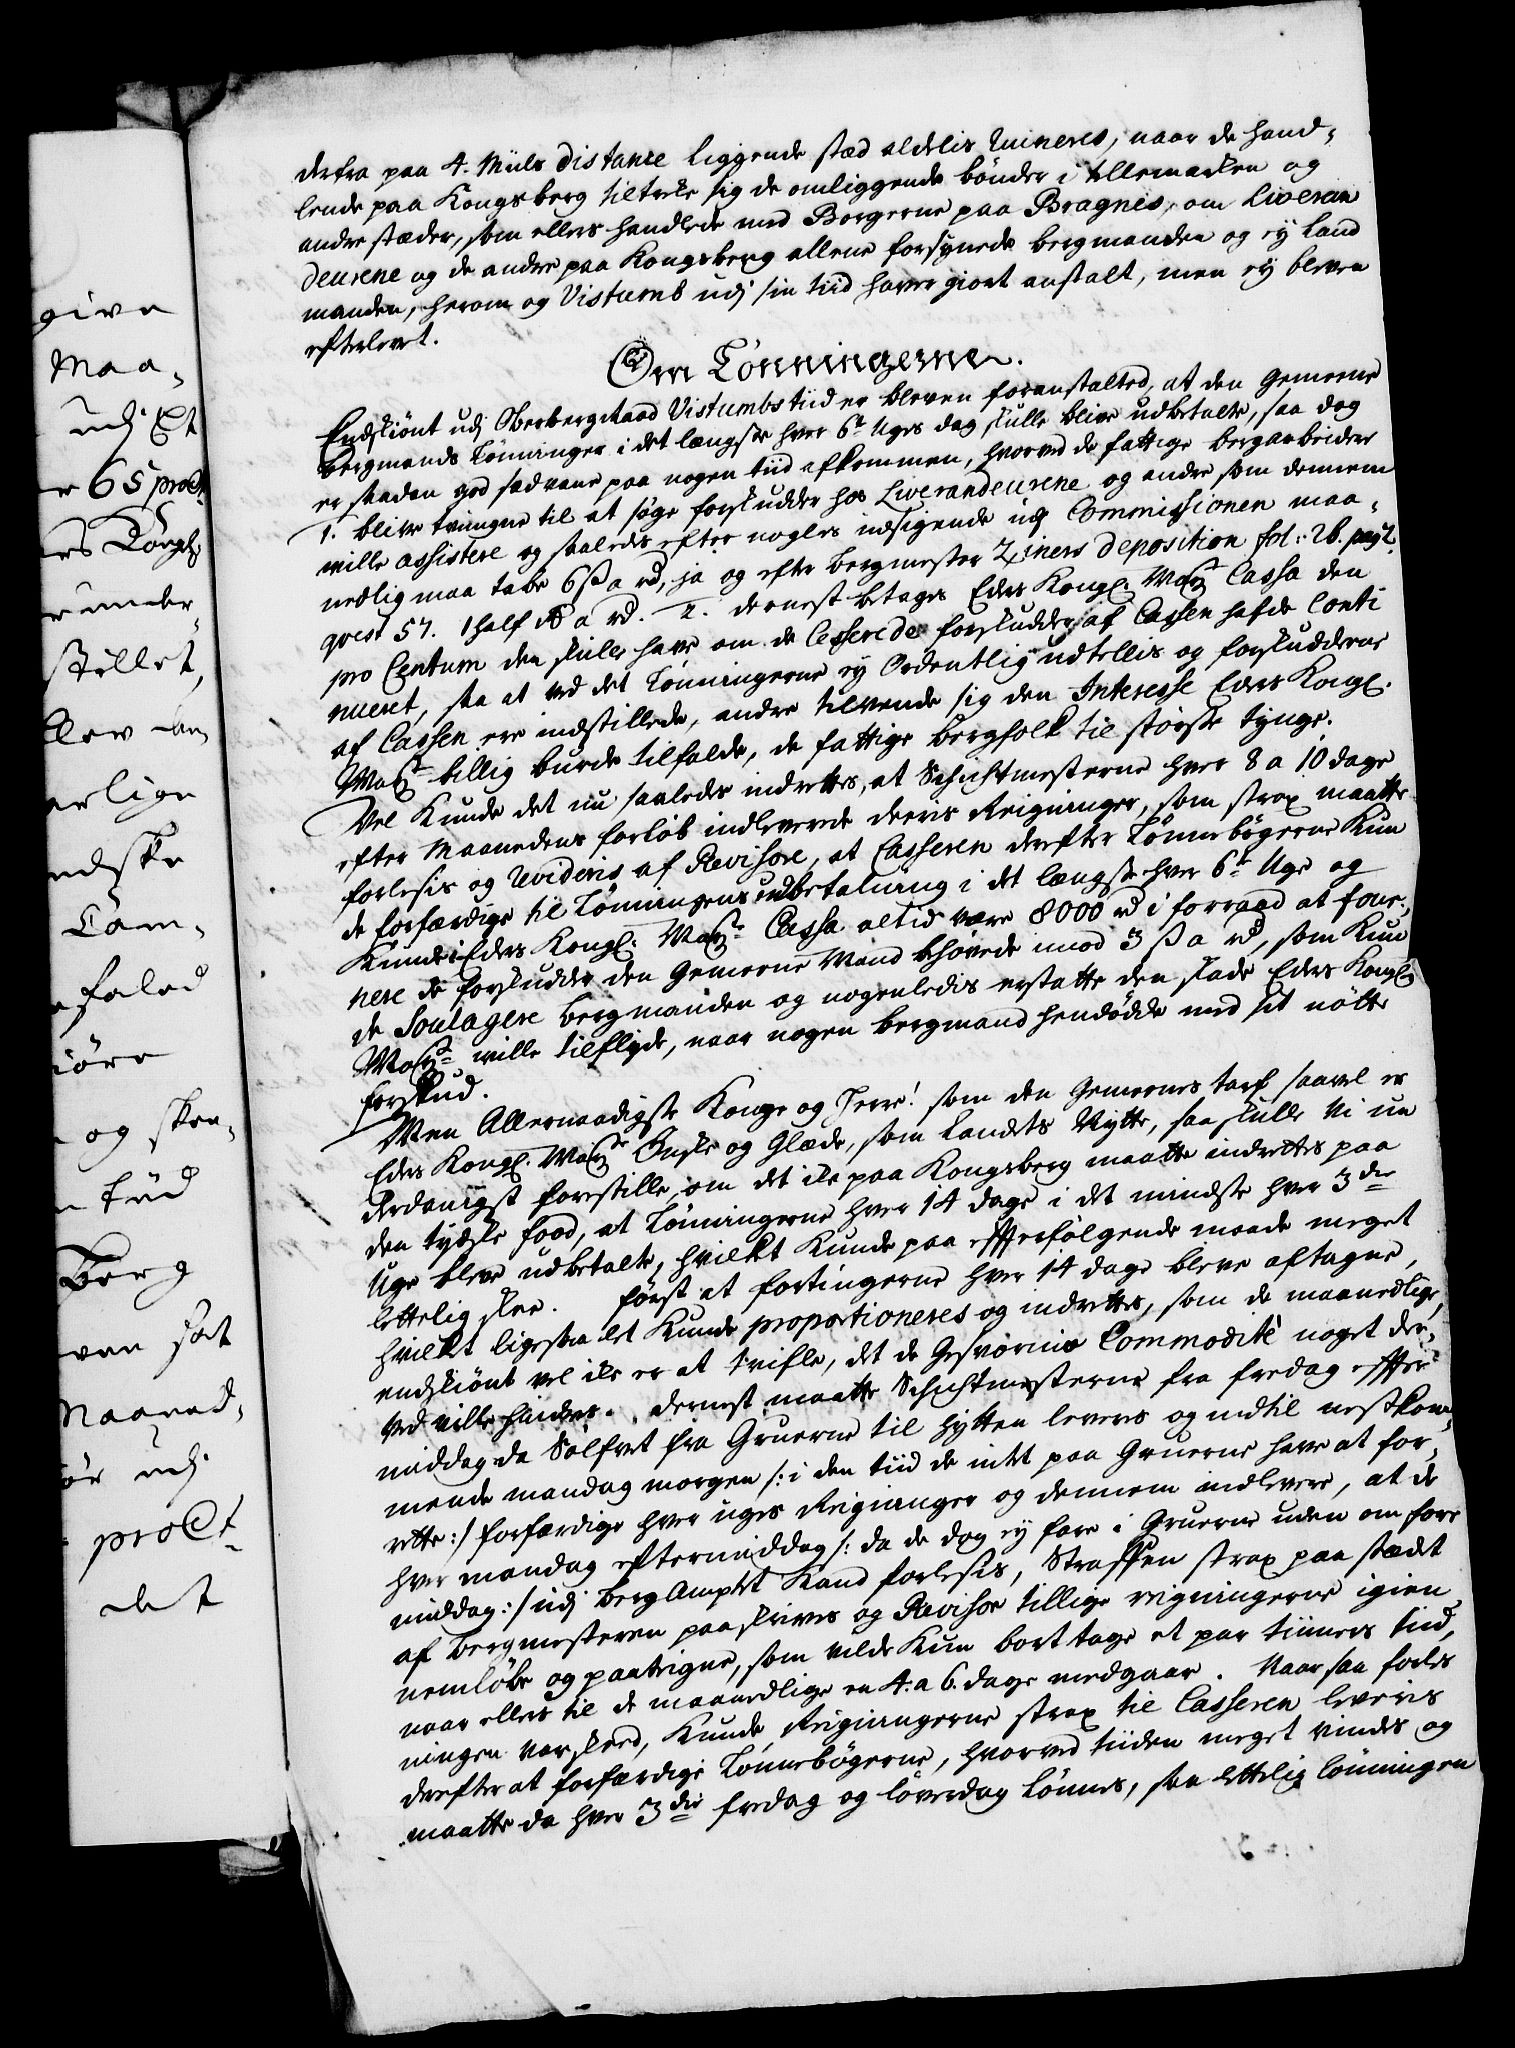 give
Maa-
udj Et
65 proCt
under
stillet,
erlige
og
tiid
Berg
Maaned,
udj
proCt
det
derfra paa 4. Miils distance liggende stæd aldelis Ruineres, naar de hand-
lende paa Kongsberg tiltrekke sig de omliggende bønder i Tellemarken og
andre stæder, som ellers handlede med Borgerne paa Bragnes, om Liveran
deurene og de andre paa Kongsberg allene forsynede bergmanden og ey Land
manden, herom og Vistumb udj sin tiid hafver giort anstalt, men ey bleven
efterlevet.
Om Lønningerne.
Endskiønt udj Oberbergstaad Vistumbs tiid er bleven foranstalted, at den Gemeene
bergmands Lønninger i det længste hver 6te Uges dag skulle blive udbetalte, saa dog
er saadan god sædvane paa nogen tiid afkommen, hvorved de fattige bergarbeider
1. blive tvungne til at søge forskudder hos Liverandeurene og andre som dennem
wille assistere og saaledis efter nogles udsigende udj Commissionen maa-
nedlig maa tabe 6 ß a rd, ja og efter bergmester Ziners deposition fol: 26. pag 2.
qvest 57. 1 half ort a rd. 2. dernest betages Eders Kongl. Mayt Cassa den
pro Centum den skulle have om de Casserede forskudder af Cassen hafde Conti
nueret, saa at ved det Lønningerne ey Ordentlig udtellis og forskudderne
af Cassen ere indstillede, andre tilvende sig den Interesse Eders Kongl.
Mayt billig burde tilfalde, de fattige bergfolk til største tynge.
Vel Kunde det nu saaledes indrettes, at Schichtmesterne hver 8 a 10 dage
efter Maanedens forløb indleverede deeris Reigninger, som strax maatte
forlesis og Revideris af Revisore, at Casseren derefter Lønnebøgerne Kun
de forfærdige til Lønningens udbetalning i det længste hver 6te Uge og
Kunde i Eders Kongl. Mayt Cassa altid være 8000 rd i forraad at four-
nere de forskudder den Gemeene Mand behøvede imod 3 ß a rd, som Kun
de Soulagere bergmanden og nogenledis erstatte den skade Eders Kongl
Mayt wille tilflyde, naar nogen bergmand hendødde med sit nølte
forskud.
Men Allernaadigste Konge og Herre! som den Gemeenes tarf saavel er
Eders Kongl. Mayt Ønske og Glæde, som Landets Nytte, saa skulle Vi un
derdanigst forestille, om det ike paa Kongsberg maatte indrettes paa
den tydske food, at Lønningerne hver 14 dage i det mindste hver 3die
Uge bleve udbetalte, hvilket Kunde paa effterfølgende maade meget
lettelig skee. først at fortingerne hver 14 dage bleve aftagne,
hvilket ligesaa let Kunde proportioneres og indrettes, som de maanedlige,
endskiønt vel ike er at tvifle, det de Gesvornis Commodité noget der-
ved ville hindres. dernest maatte Schichtmesterne fra fredag effter
middag da Sølfvet fra Gruerne til hytten leveres og indtil nestkom-
mende mandag morgen /: i den tiid de intet paa Gruerne have at for-
rette :/ forfærdige hver uges Reigninger og dennem indlevere, at de
hver mandag eftermiddag /: da de dog ey fare i Gruerne uden om for
middag :/ udj Berg Amptet Kand forlesis, Straffen strax paa stædet
af bergmesteren paaskrives og Revisor tillige reigningerne igien
nemløbe og paategne, som vilde Kun bort tage et par tiimers tiid,
naar ellers til de maanedlige en 4. a 6. dage medgaar. Naar saa forles
ningen var skeed, Kunde Reigningerne strax til Casseren leveris
derefter at forfærdige Lønnebøgerne, hvorved tiiden meget vindes og
maatte da hver 3die fredag og løverdag Lønnes, saa lettelig Lønningen